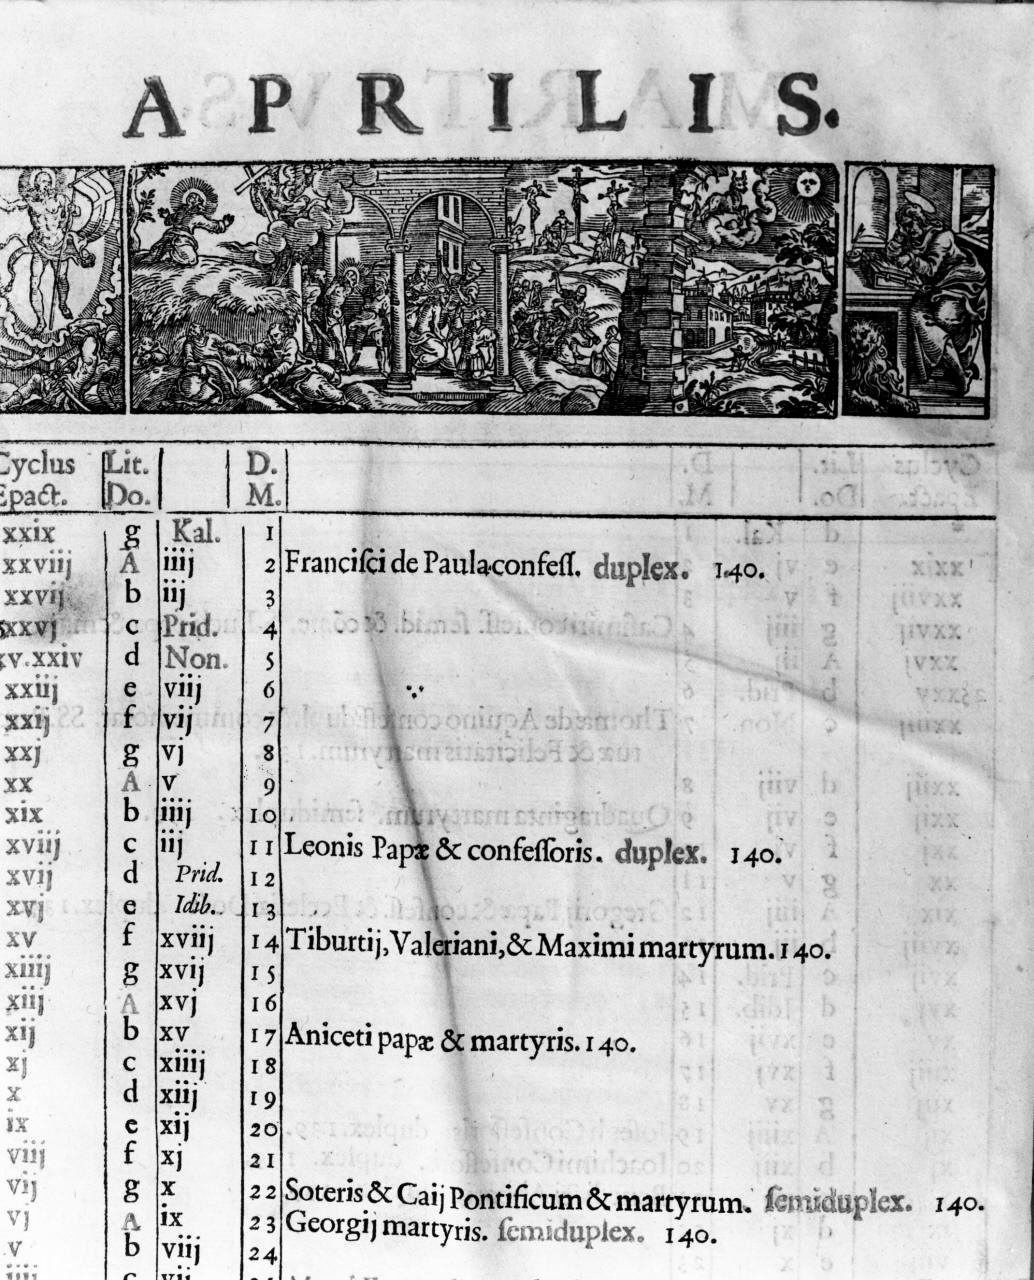 APRILIS.
Cyclus Lit. D.
Epact. Do. M.
xxix g Kal. 1
xxviij A iiij 2 Franciſci de Paula confeſſ. duplex. 140.
xxvij b iij 3
xxvj c Prid. 4
xv.xxiv d Non. 5
xxiij e viij 6
xxij f vij 7
xxj g vj 8
xx A v 9
xix b iiij 10
xviij c iij 11 Leonis Papæ & confeſſoris. duplex. 140.
xvij d Prid. 12
xvj e Idib. 13
xv f xviij 14 Tiburtij, Valeriani, & Maximi martyrum. 140.
xiiij g xvij 15
xiij A xvj 16
xij b xv 17 Aniceti papæ & martyris. 140.
xj c xiiij 18
x d xiij 19
ix e xij 20
viij f xj 21
vij g x 22 Soteris & Caij Pontificum & martyrum. ſemiduplex. 140.
vj A ix 23 Georgij martyris. ſemiduplex. 140.
v b viij 24
iiij c vij